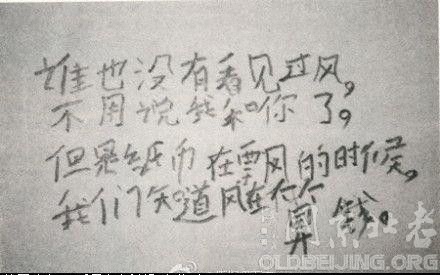 谁也没有看见过风,
不用说我和你了。
但是纸币在飘风的时候,
我们知道风在
算 钱。
老北京网
OLDBEIJING.ORG